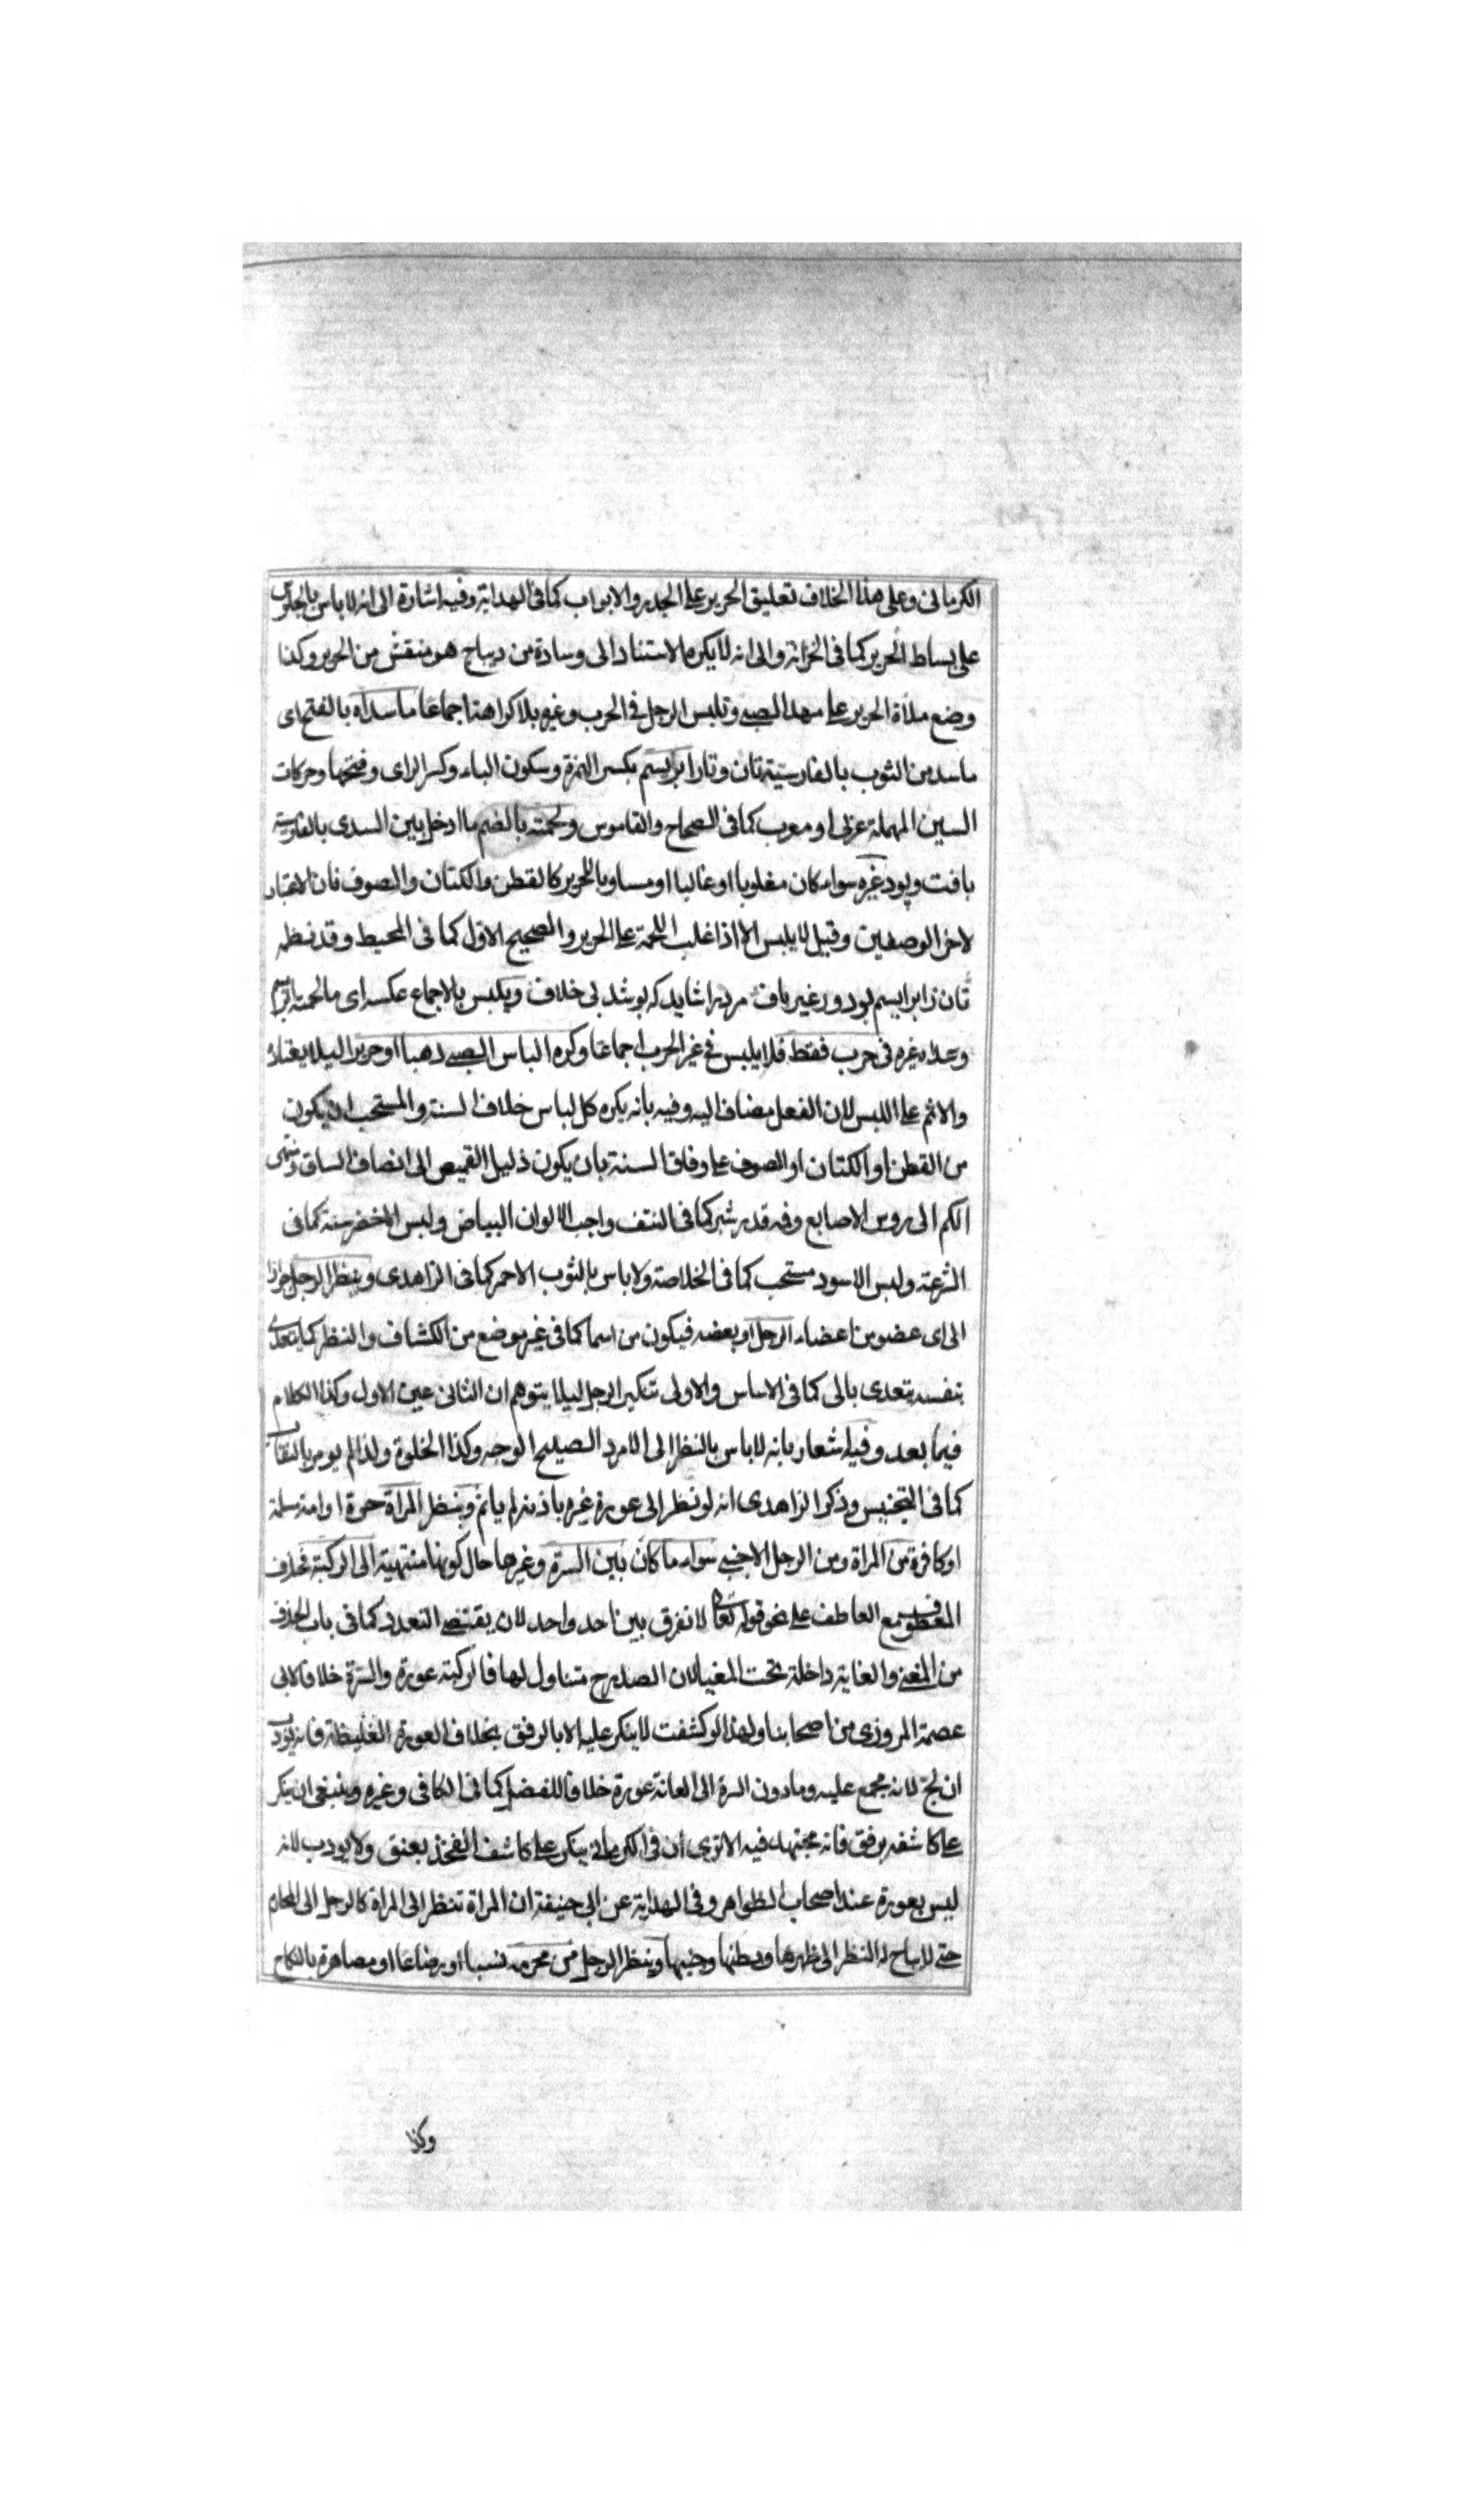 الكرمانى وعلى هذا الخلاف تعليق الحرير على الجدر والابواب كما فى الهداية وفيه اشارة الى انه لا باس بالجلوس
على بساط الحرير كما فى الخزانة والى انه لا يكره الاستناد الى وسادة من ديباج هو منقش من الحرير وكذا
وضع ملاة الحرير على مهد الصبى وتلبس الرجل فى الحرب وغيره بلا كراهة اجماعا ما سداه بالفتح اى
ما سد من الثوب بالفارسية تان وتار ابريسم بكسر الهمزة وسكون الباء وكسر الراى وفتحها وحركات
السين المهملة عربى او معرب كما فى الصحاح والقاموس ولحمته بالضم ما ادخل بين السدى بالفارسية
بافت وپود غيره سواء كان مغلوبا او غالبا او مساويا للحرير كالقطن والكتان والصوف فان الاعتبار
لاخر الوصفين وقيل لا يلبس الا اذا غلب اللحمة على الحرير والصحيح الاول كما فى المحيط وقد نظم
تان ز ابرايسم بود ور غير باف مرد را شايد كه پوشد بى خلاف ويلبس بالاجماع عكسه اى ما لحمته ابريسم
وسداه غيره فى حرب فقط فلا يلبس فى غير الحرب اجماعا وكره الباس الصبى ذهبا او حريرا ليلا يعتاد
والاثم على اللبس لان الفعل مضاف اليه وفيه بانه يكره كل لباس خلاف السنة والمستحب ان يكون
من القطن او الكتان او الصوف على وفاق السنة بان يكون ذيل القميص الى انصاف الساق وينتهى
الكم الى روس الاصابع وفمه قدر شبر كما فى النتف واحب الالوان البياض ولبس الاخضر سنة كما فى
الشرعة ولبس الاسود مستحب كما فى الخلاصة ولا باس بالثوب الاحمر كما فى الزاهدى وينظر الرجل جوازا
الى اى عضو من اعضاء الرجل او بعضه فيكون من اسما كما فى غير موضع من الكشاف والنظر كما يتعدى
بنفسه يتعدى بالى كما فى الاساس والاولى تنكير الرجل ليلا يتوهم ان الثانى عين الاول وكذا الكلام
فيما بعد وفيه اشعار بانه لا باس بالنظر الى الامرد الصبيح الوجه وكذا الخلوة ولذا لم يومر بالنقاب
كما فى التجنيس وذكر الزاهدى انه لو نظر الى عورة غيره باذنه لم ياثم وينظر المراة حرة او امة مسلمة
او كافرة من المراة ومن الرجل الاجنبى سواء ما كان بين السرة وغيرها حال كونها منتهية الى الركبة فحذف
المعطوف مع العاطف على نحو قوله تعالى لا نفرق بين احد واحد لان يقتضى التعدد كما فى باب الحذف
من المغنى والغاية داخلة تحت المغيا لان الصدر متناول لها فالركبة عورة والسرة خلافا لابى
عصمة المروزى من اصحابنا ولهذا لو كشفت لا ينكر عليه الا بالرفق بخلاف العورة الغليظة فانه يؤدب
ان لج لانه مجمع عليه وما دون السرة الى العانة عورة خلافا للفضلى كما فى الكافى وغيره وينبغى ان ينكر
على كاشفه برفق فانه مجتهد فيه الا ترى ان فى الكرمانى ينكر على كاشف الفخذ بعنق ولا يودب لانه
ليس بعورة عند اصحاب الظواهر وفى الهداية عن ابى حنيفة ان المراة تنظر الى المراة كالرجل الى المحارم
حتى لا يباح له النظر الى ظهرها وبطنها وجنبها وينظر الرجل من محرمه نسبا او رضاعا او مصاهرة بالنكاح
وكذا